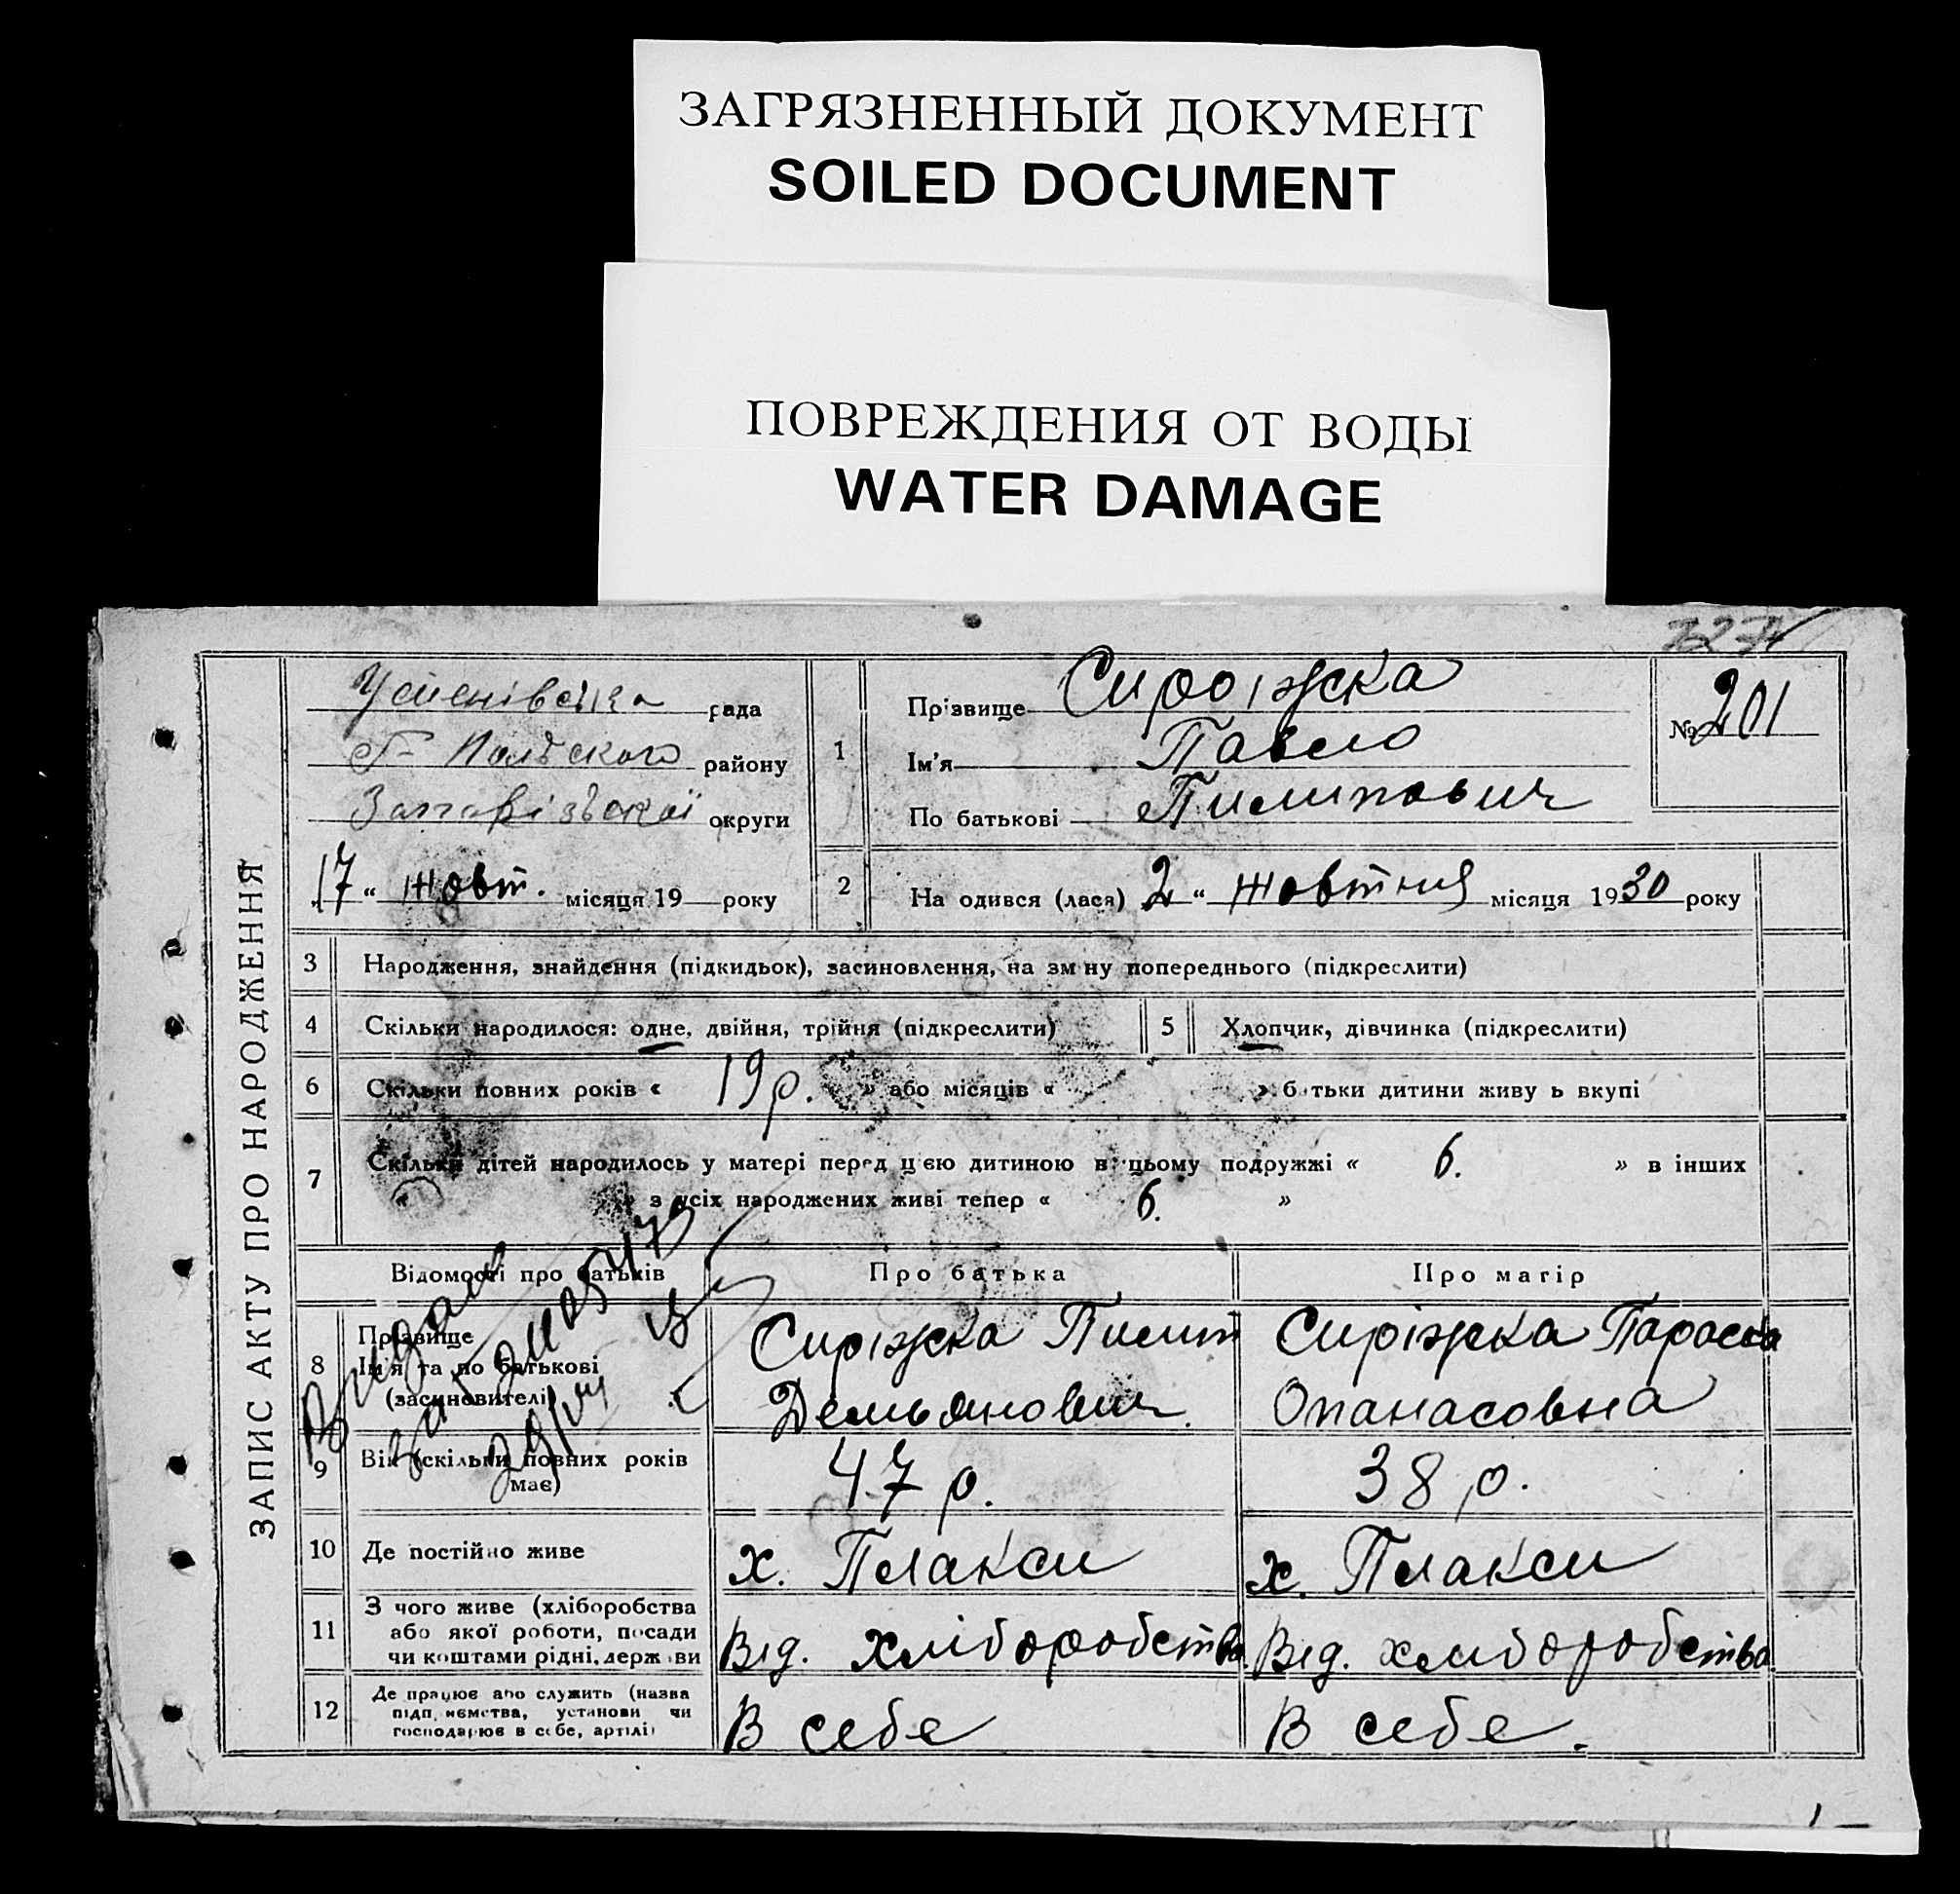 ЗАГРЯЗНЕННЫЙ ДОКУМЕНТ
SOILED DOCUMENT
ПОВРЕЖДЕНИЯ ОТ ВОДЫ
WATER DAMAGE
ЗАПИС АКТУ ПРО НАРОДЖЕННЯ
рада
району
Запорізької округи
17 " жовт. місяця 19 року
1
Прізвище Сироіжка
Ім'я Павло
По батькові Пилипович
№ 201
2 На одився (лася) 2 " жовтня місяця 1930 року
3 Народження, знайдення (підкидьок), засиновлення, на зм ну попереднього (підкреслити)
4 Скільки народилося: одне, двійня, трійня (підкреслити)
5 Хлопчик, дівчинка (підкреслити)
6 Скільки повних років « 19 р. » або місяців « » б тьки дитини живу ь вкупі
7 Скільки дітей народилось у матері перед цією дитиною в цьому подружжі « 6. » в інших
« » з усіх народжених живі тепер « 6. »
Відомості про батьків Про батька Про матір
8 Прізвище
Ім'я та по батькові
(засиновителі)
Сиріжка Пилип
Демьянович.
Сиріжка Параска
Опанасовна
9 Вік (скільки повних років
має)
47 р.
38 р.
10 Де постійно живе
х. Плакси
х. Плакси
11 З чого живе (хліборобства
або якої роботи, посади
чи коштами рідні, держ ви
Від. хліборобства
Від. хліборобства
12 Де працює або служить (назва
підп иємства, установи чи
господарює в себе, артілі)
В себе
В себе.
Видано